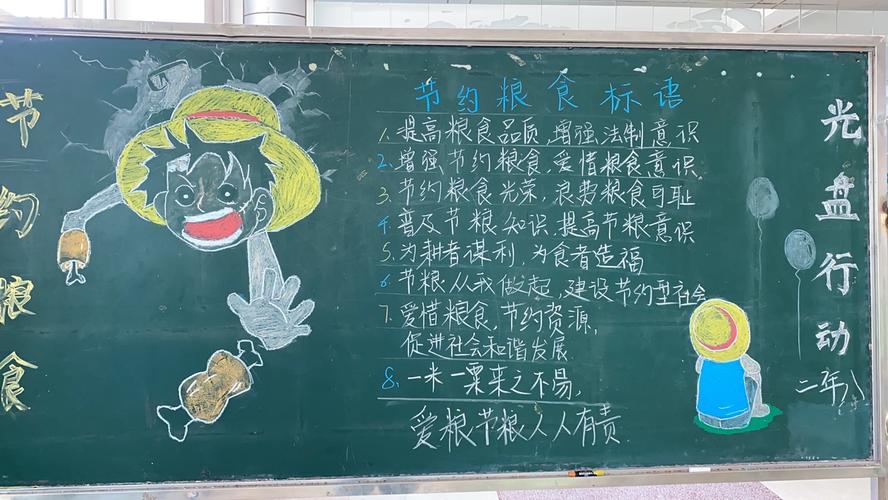 节约粮食
节约粮食标语
1. 提高粮食品质,增强法制意识
2. 增强节约粮食,爱惜粮食意识
3. 节约粮食光荣,浪费粮食可耻
4. 普及节粮知识,提高节粮意识
5. 为耕者谋利,为食者造福
6. 节粮从我做起,建设节约型社会
7. 爱惜粮食,节约资源,
促进社会和谐发展
8. 一米一粟来之不易,
爱粮节粮人人有责
光盘行动
二年八